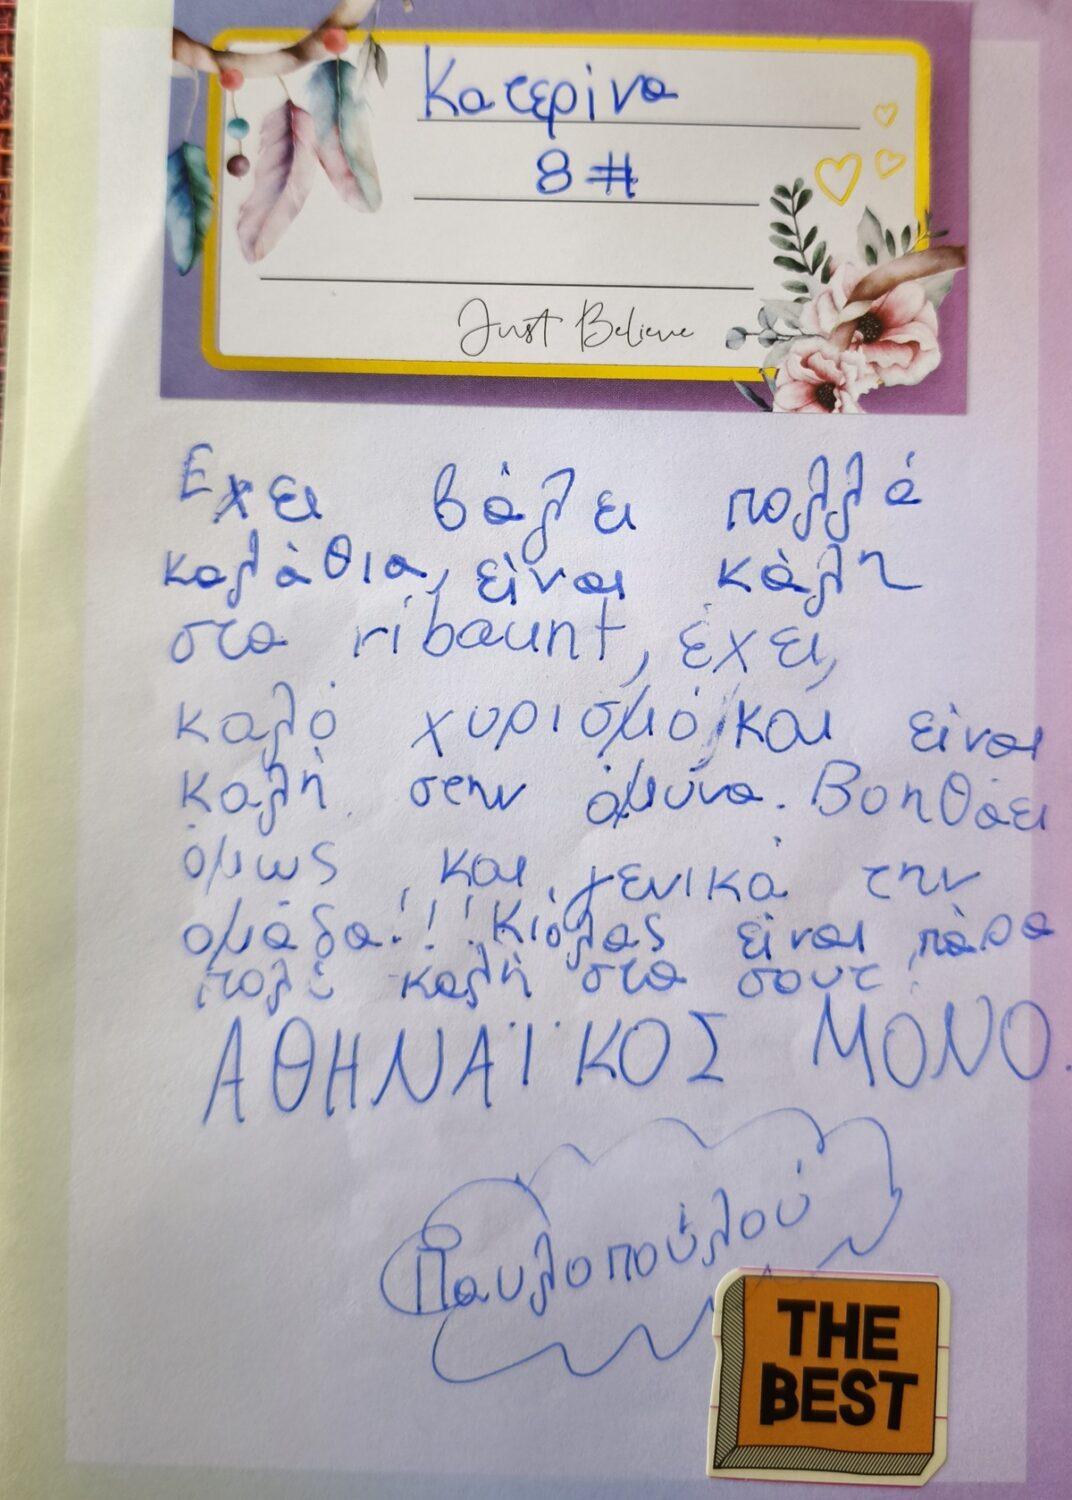 Κατερίνα
8#
Just Believe
Εχει βάλει πολλά
καλάθια, είναι κάλη
στα ribaunt, έχει,
καλό χυρισμό, και είναι
καλή στην άμυνα. Βοηθάει
όμως, και γενικά την
ομάδα!!! Κιόλας είναι πάρα
πολύ καλή στα σουτ!
ΑΘΗΝΑΪΚΟΣ ΜΟΝΟ.
Παυλοπούλου
THE
BEST